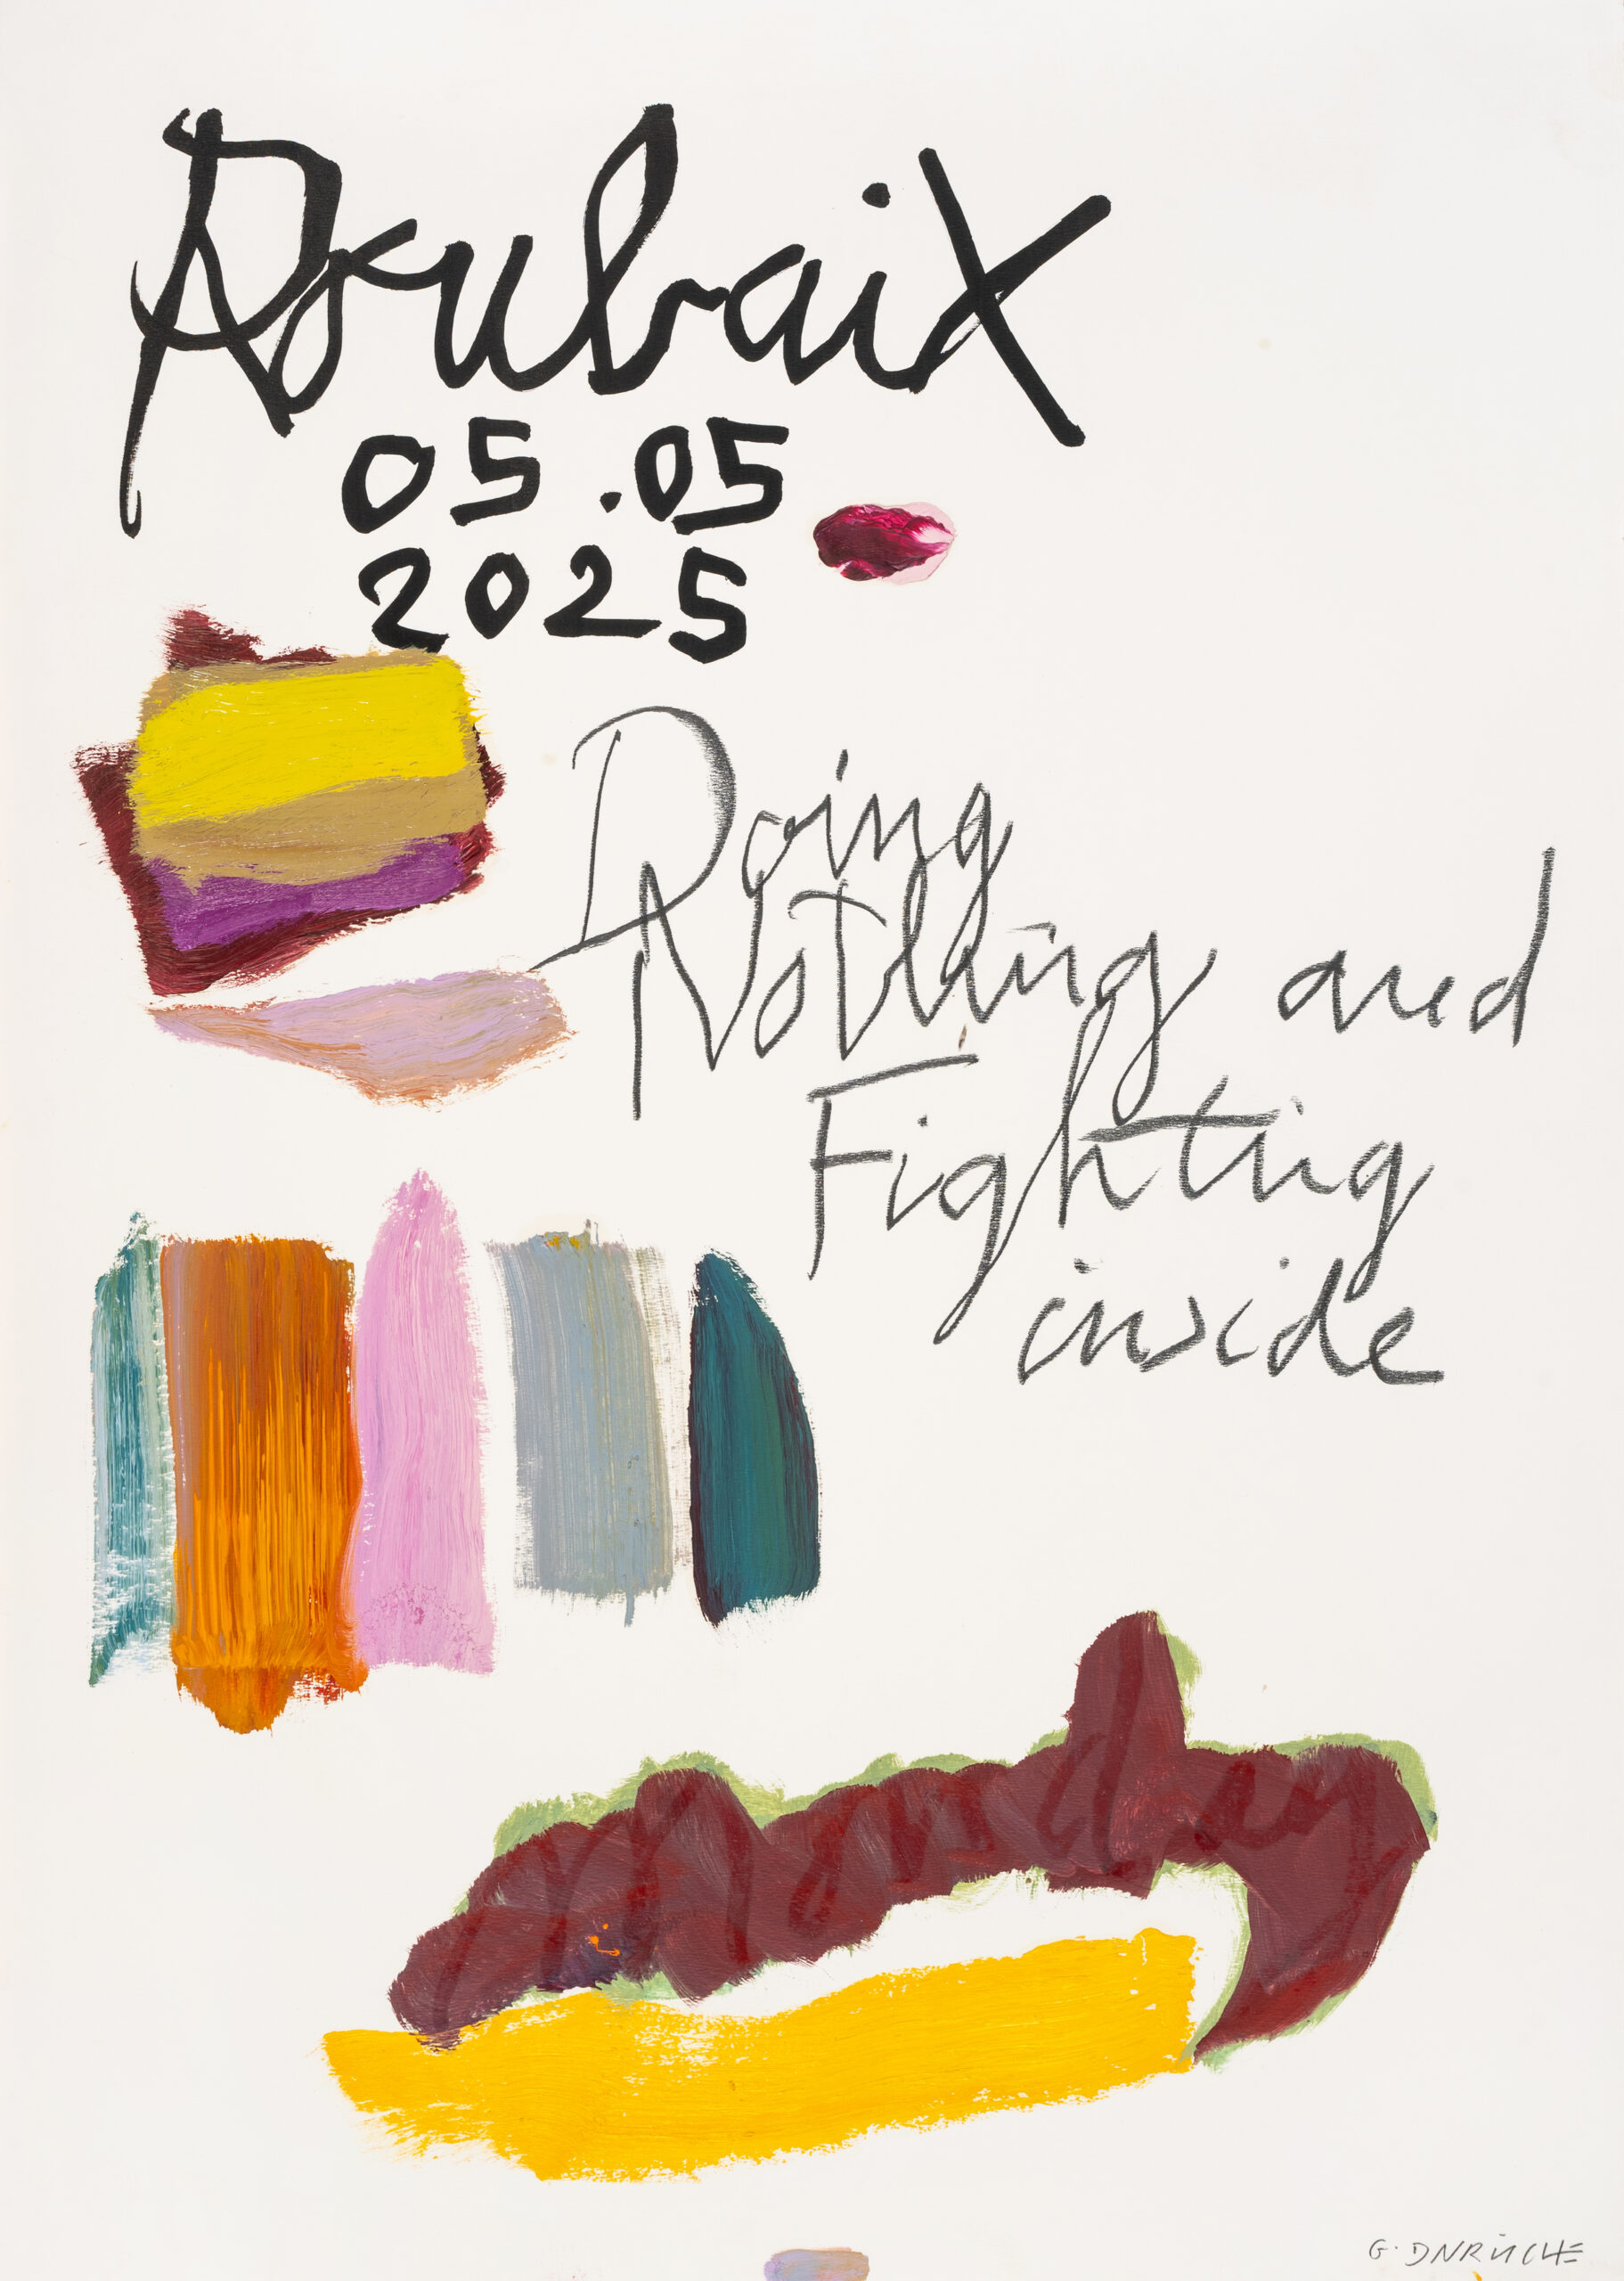 Roubaix
05.05
2025
Doing
Nothing and
Fighting
inside
Monday